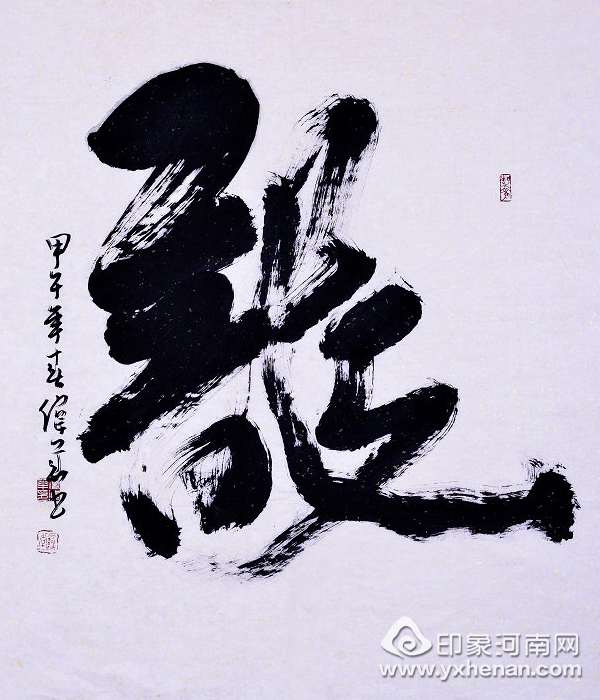 龍
甲午年春
印象河南网
www.yxhenan.com